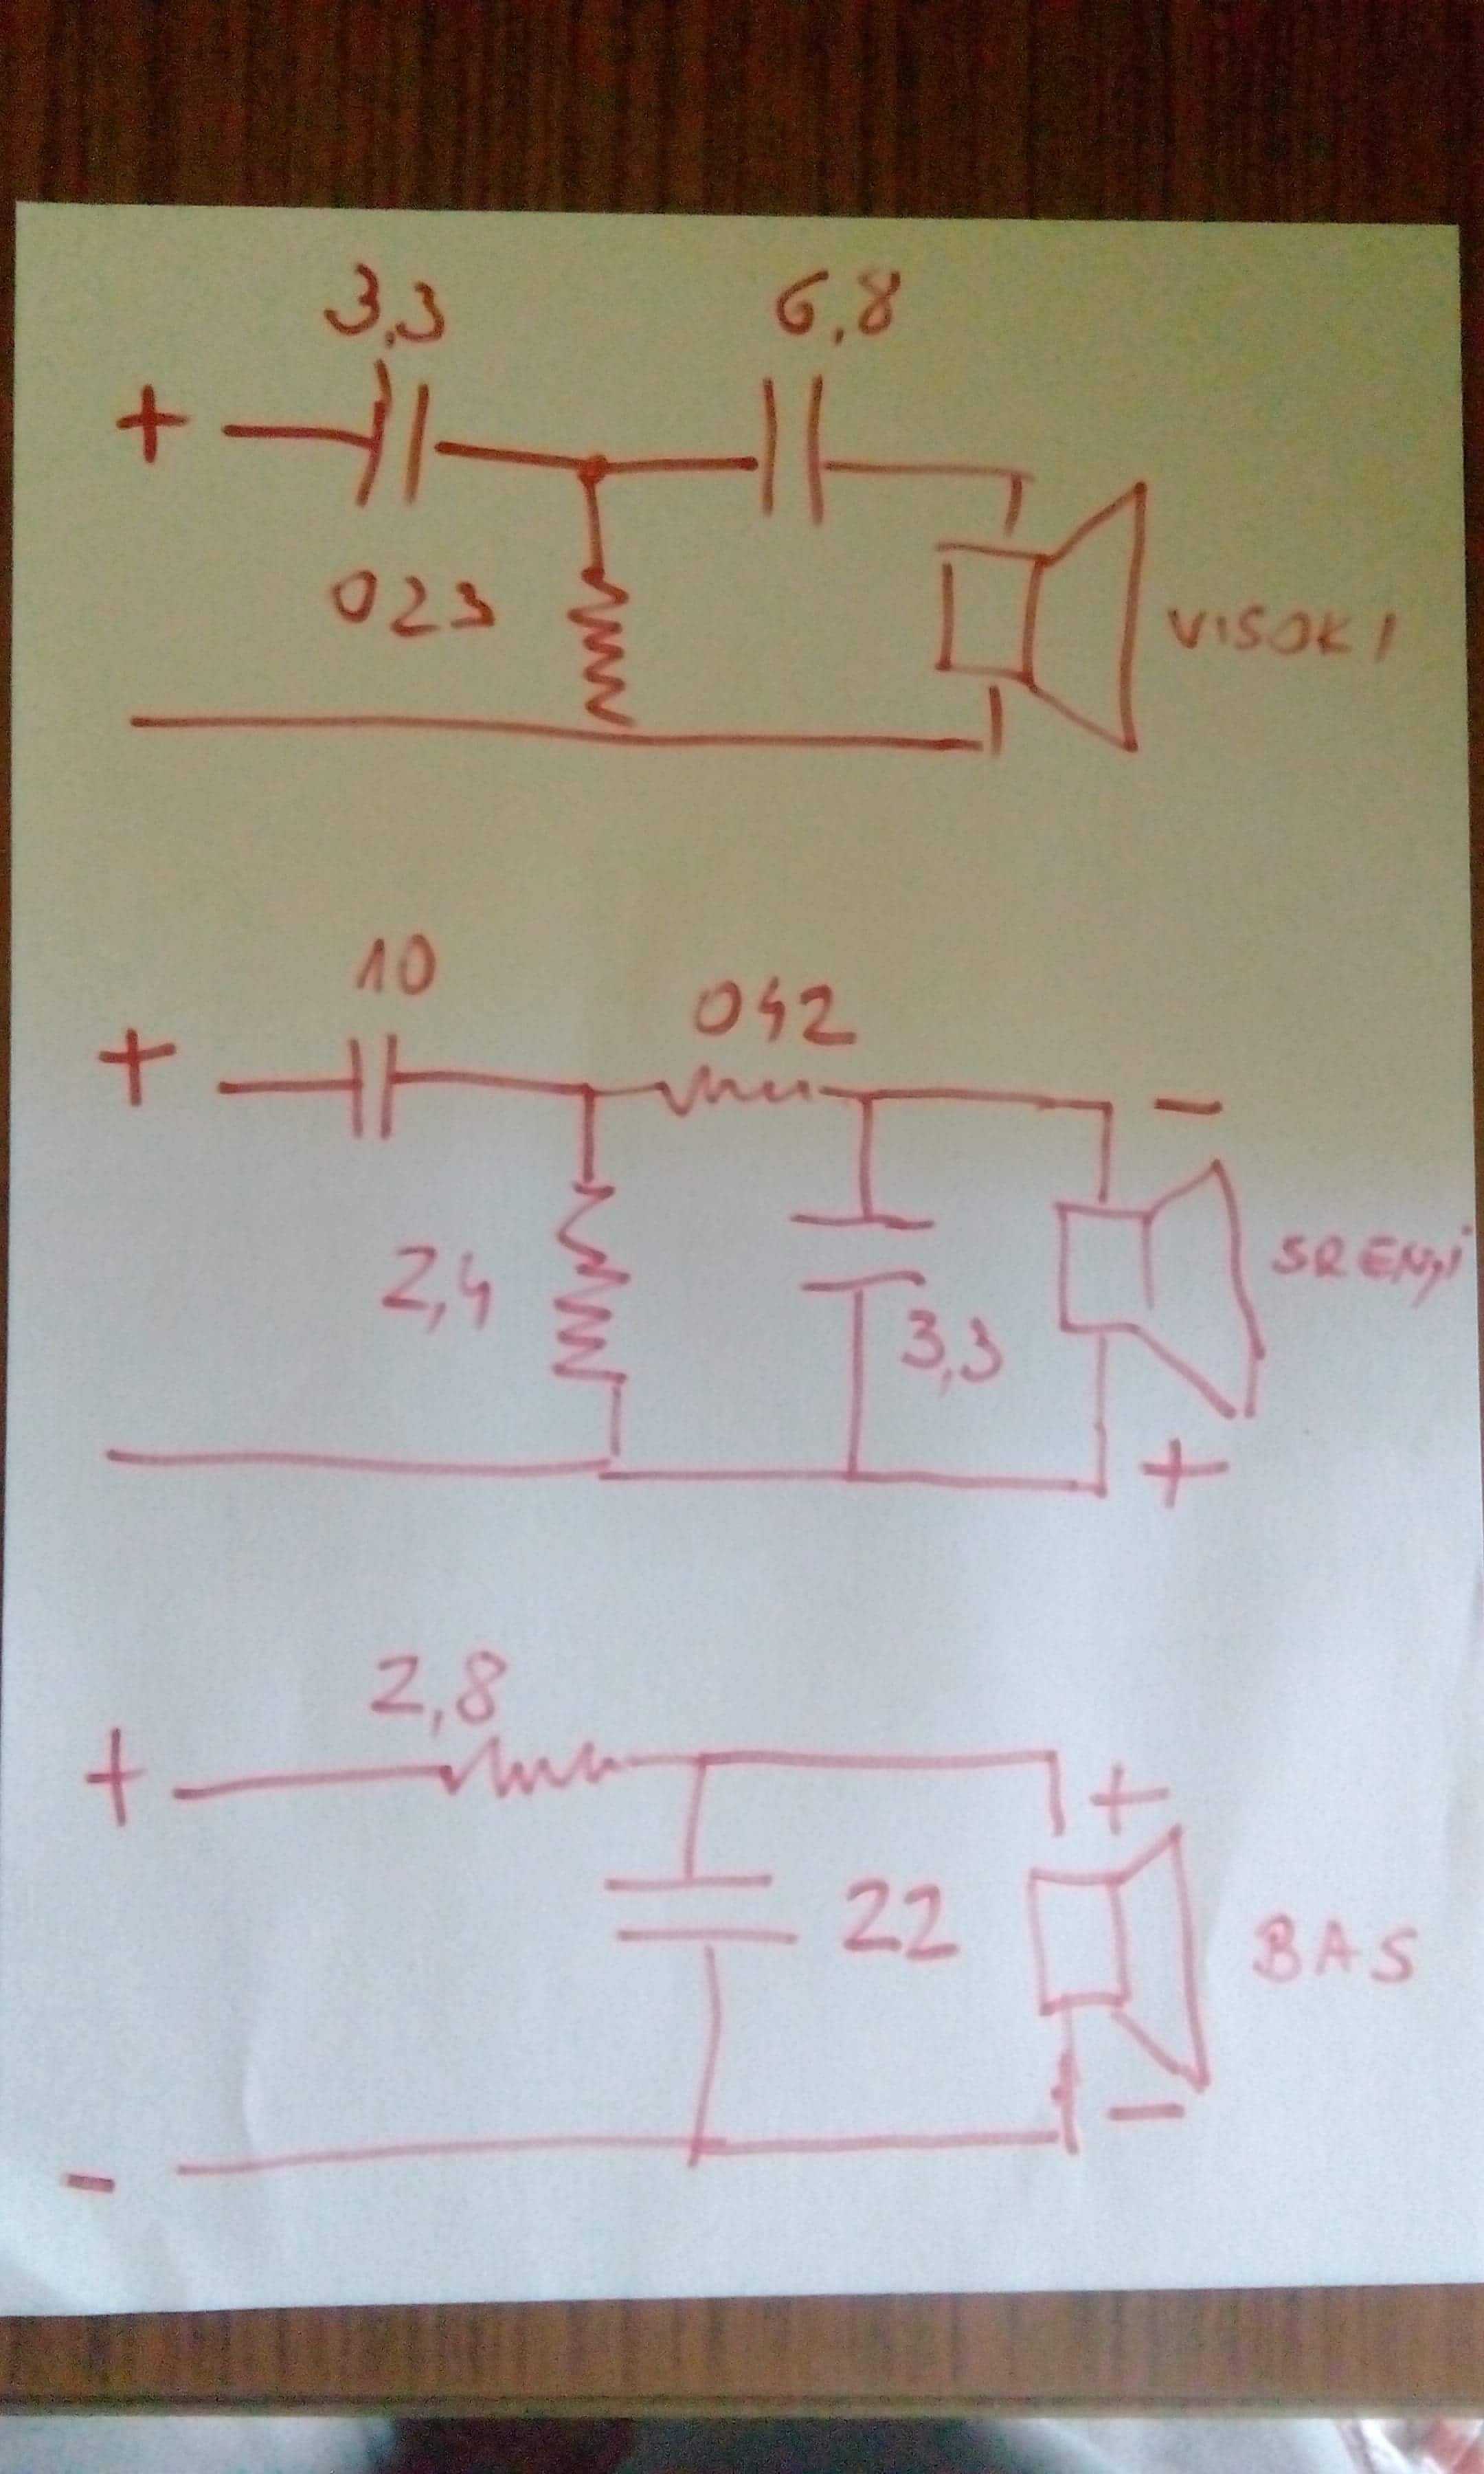 3,3 6,8
+
023 VISOKI
10 042
+ -
2,4 3,3 SRENJI
+
2,8
+ +
22 BAS
- -